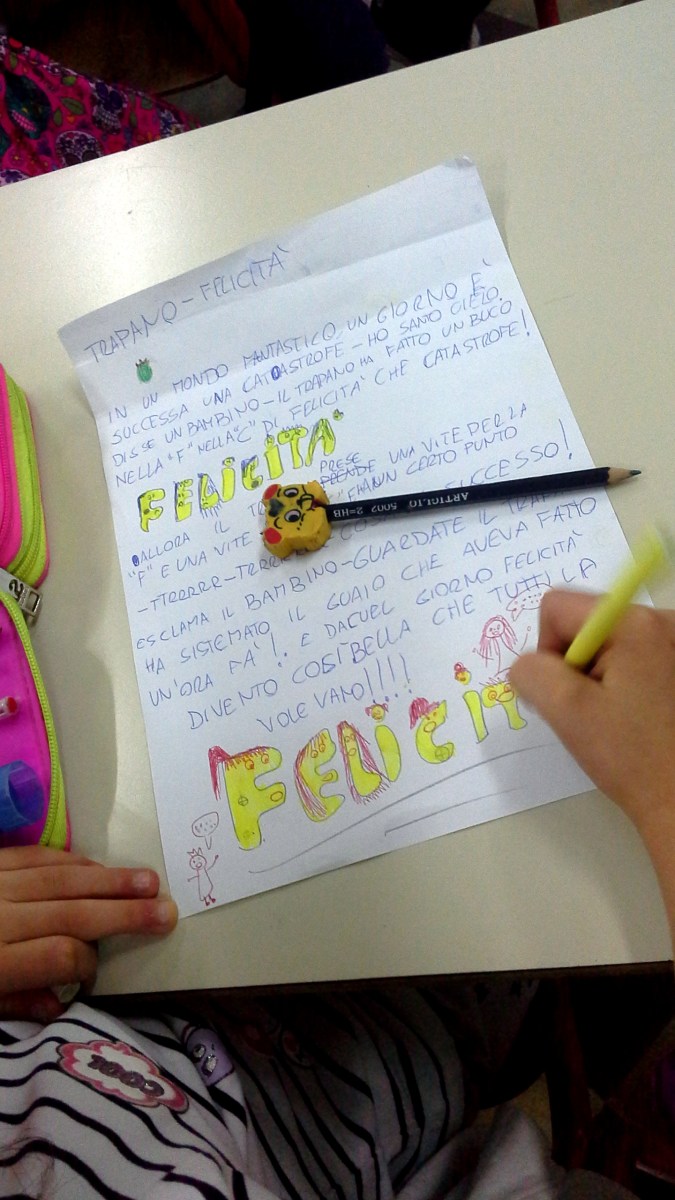 TRAPANO-FELICITÀ
IN UN MONDO FANTASTICO UN GIORNO È
SUCCESSA UNA CATOASTROFE-HO SANTO CIELO
DISSE UN BAMBINO-IL TRAPANO HA FATTO UN BUCO
NELLA "F" NELLA "C" DI FELICITÀ CHE CATASTROFE!
FELICITÀ
PRESE
ALLORA IL PRENDE UNA VITE PER LA
"F" E UNA VITE "F" HA UN CERTO PUNTO
-TTRRRRR-TRRR SUCCESSO!
ESCLAMA IL BAMBINO-GUARDATE IL
HA SISTEMATO IL GUAIO CHE AVEVA FATTO
UN'ORA FÀ! E DACUEL GIORNO FELICITÀ
DIVENTO COSÌ BELLA CHE TUTTI LA
VOLEVANO!!!!
FELICIT
ARTIGLIO 5007 2=HB
COOL